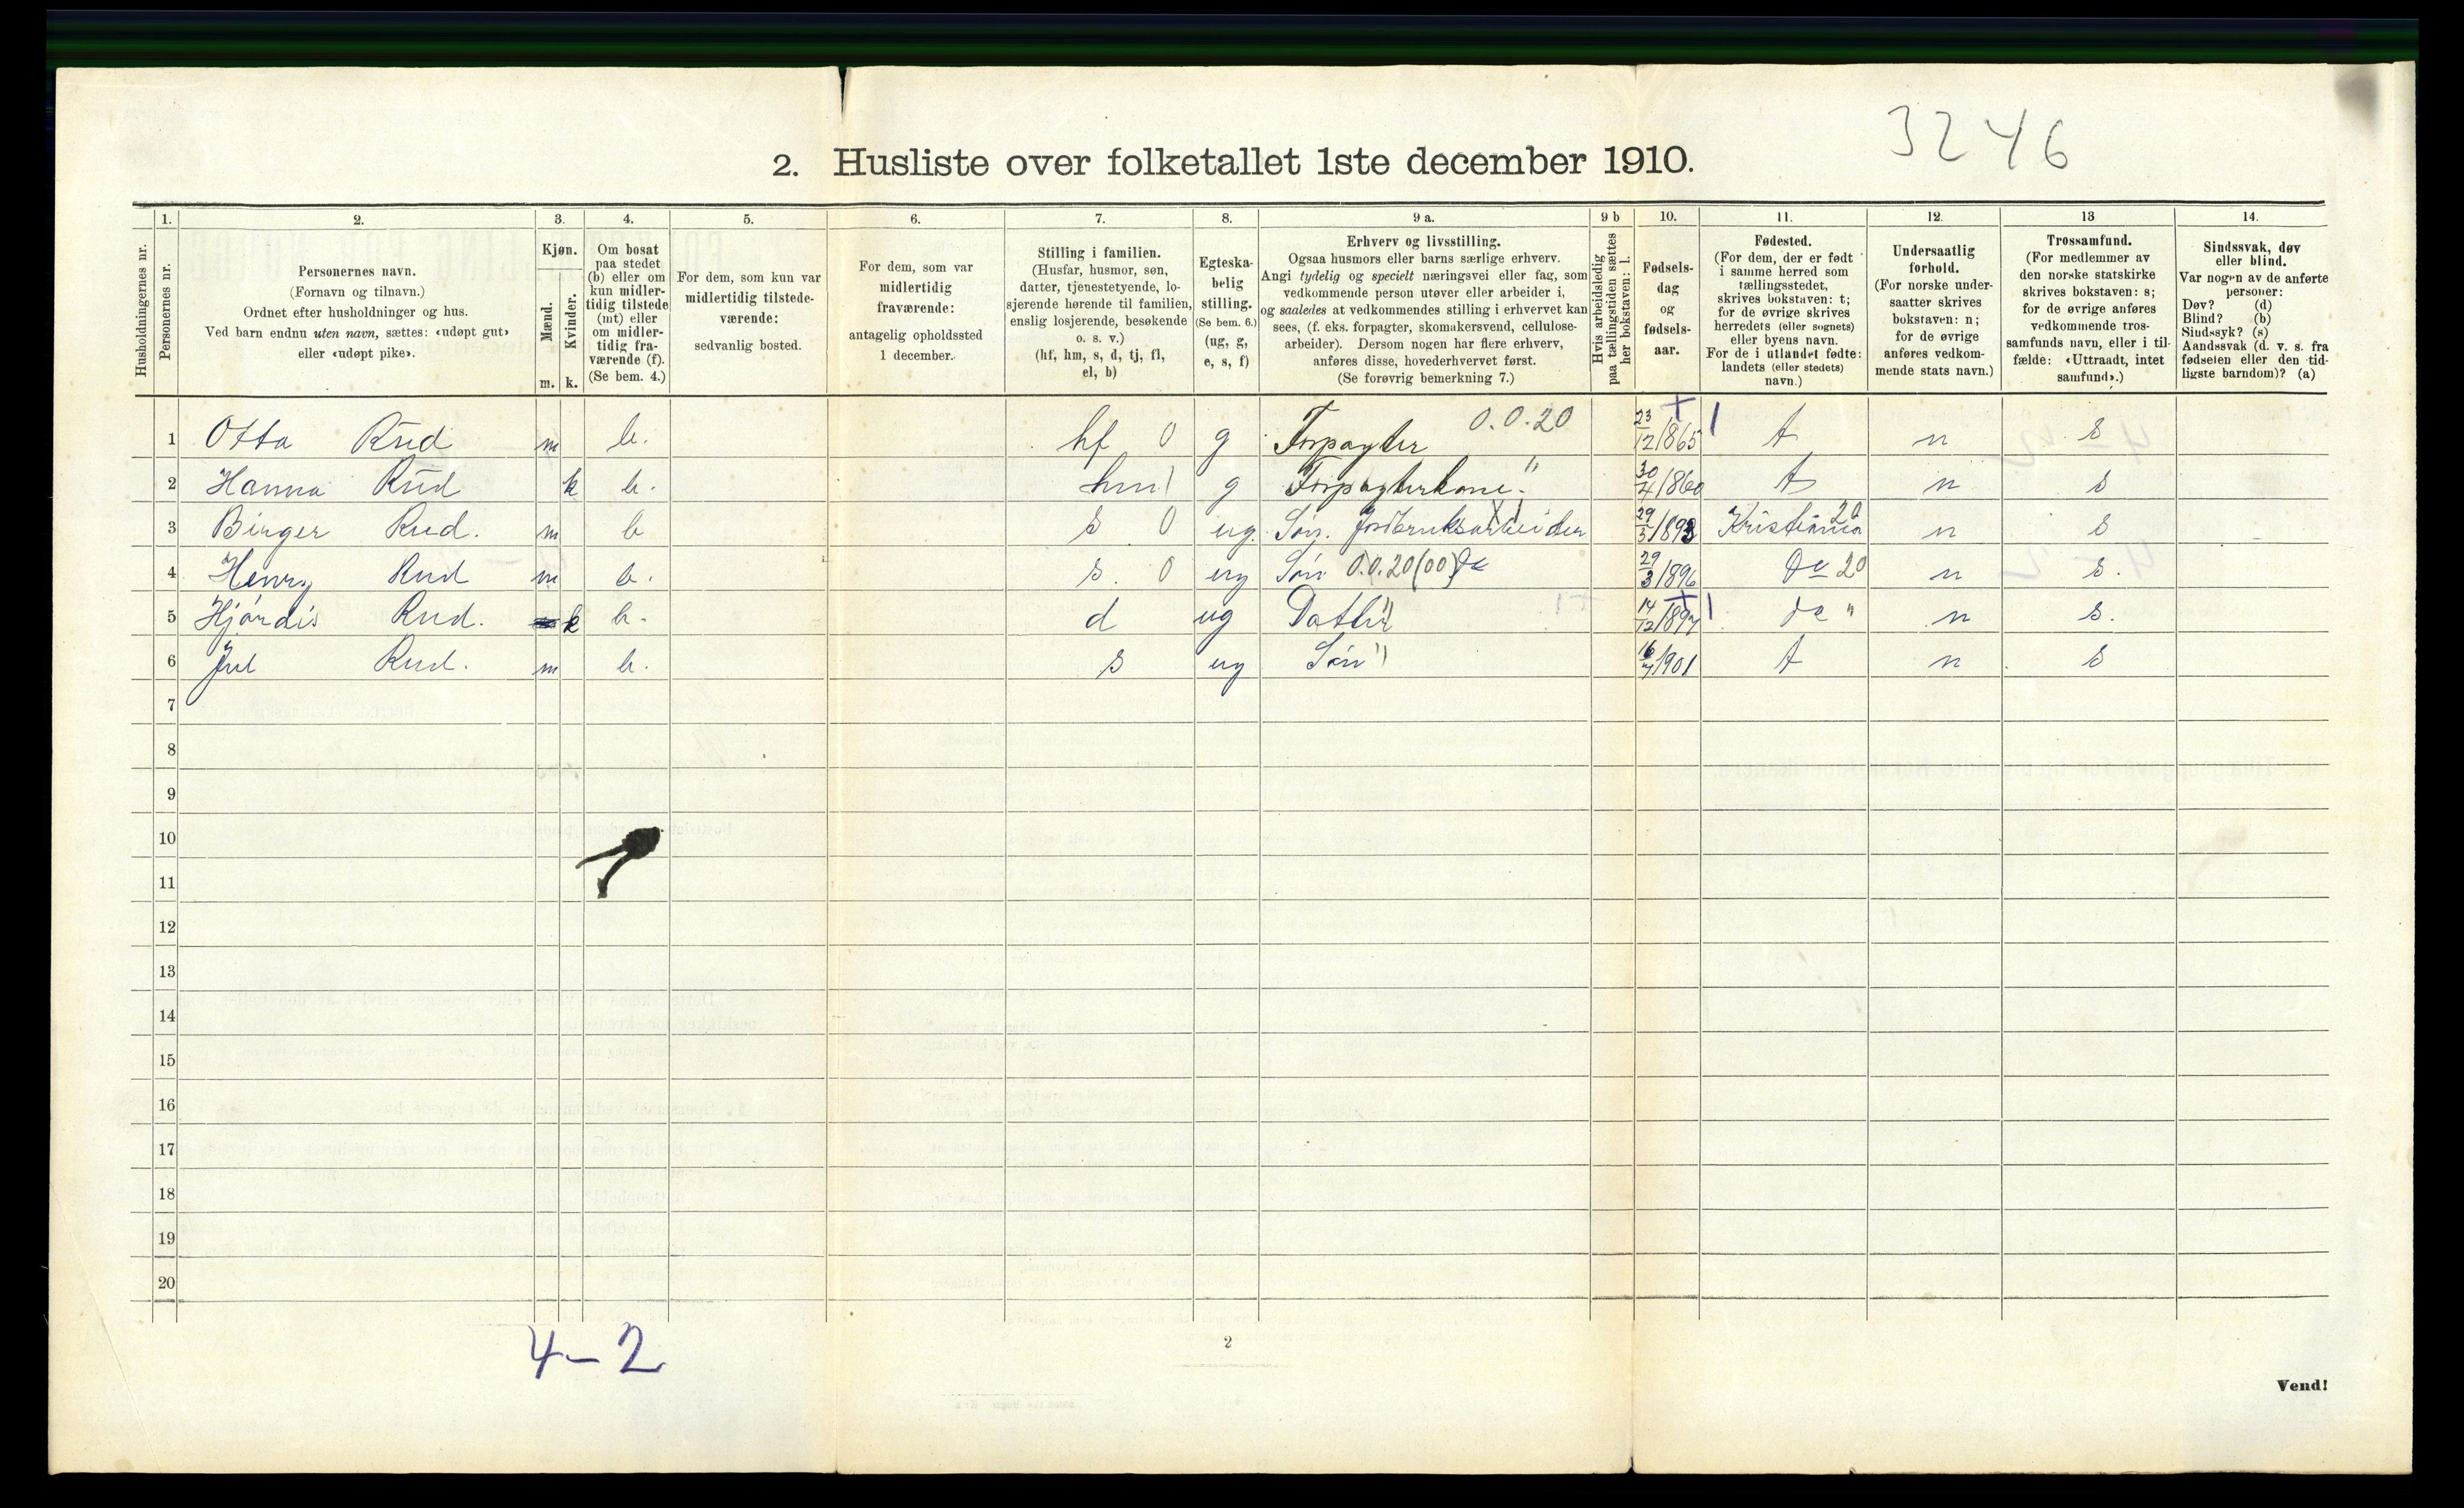 3246
2. Husliste over folketallet 1ste december 1910.
Husholdningernes nr.
1.
Personernes nr.
2.
Personernes navn.
(Fornavn og tilnavn.)
Ordnet efter husholdninger og hus.
Ved barn endnu uten navn, sættes: «udøpt gut»
eller «udøpt pike».
3.
Kjøn.
Mænd.
Kvinder.
m. k.
4.
Om bosat
paa stedet
(b) eller om
kun midler-
tidig tilstede
(mt) eller
om midler-
tidig fra-
værende (f).
(Se bem. 4.)
5.
For dem, som kun var
midlertidig tilstede-
værende:
sedvanlig bosted.
6.
For dem, som var
midlertidig
fraværende:
antagelig opholdssted
1 december.
7.
Stilling i familien.
(Husfar, husmor, søn,
datter, tjenestetyende, lo-
sjerende hørende til familien,
enslig losjerende, besøkende
o. s. v.)
(hf, hm, s, d, tj, fl,
el, b)
8.
Egteska-
belig
stilling.
(Se bem. 6.)
(ug, g,
e, s, f)
9 a.
Erhverv og livsstilling.
Ogsaa husmors eller barns særlige erhverv.
Angi tydelig og specielt næringsvei eller fag, som
vedkommende person utøver eller arbeider i,
og saaledes at vedkommendes stilling i erhvervet kan
sees, (f. eks. forpagter, skomakersvend, cellulose-
arbeider). Dersom nogen har flere erhverv,
anføres disse, hovederhvervet først.
(Se forøvrig bemerkning 7.)
9 b
Hvis arbeidsledig
paa tællingstiden sættes
her bokstaven: l.
10.
Fødsels-
dag
og
fødsels-
aar.
11.
Fødested.
(For dem, der er født
i samme herred som
tællingsstedet,
skrives bokstaven: t;
for de øvrige skrives
herredets (eller sognets)
eller byens navn.
For de i utlandet fødte:
landets (eller stedets)
navn.)
12.
Undersaatlig
forhold.
(For norske under-
saatter skrives
bokstaven: n;
for de øvrige
anføres vedkom-
mende stats navn.)
13
Trossamfund.
(For medlemmer av
den norske statskirke
skrives bokstaven: s;
for de øvrige anføres
vedkommende tros-
samfunds navn, eller i til-
fælde: «Uttraadt, intet
samfund».)
14.
Sindssvak, døv
eller blind.
Var nogen av de anførte
personer:
Døv? (d)
Blind? (b)
Sindssyk? (s)
Aandssvak (d. v. s. fra
fødselen eller den tid-
ligste barndom)? (a)
1 Otto Rud m b. hf 0 g Forpagter 0.0.20 23/12 1865 t n s
2 Hanna Rud k b. hm g Forpagterkone " 30/4 1860 t n s
3 Birger Rud. m b s 0 ug. Søn. Jordbruksarbeider 29/5 1893 Kristiania 20 n s
4 Henry Rud m b. s. 0 ug Søn 0.0.20 (00) Do 29/3 1896 Do 20 n s.
5 Hjørdis Rud. k b. d ug Datter " 14/12 1897 do " n s.
6 Jul Rud. m b. s ug Søn " 16/7 1901 t n s
7
8
9
10
11
12
13
14
15
16
17
18
19
20
4-2
2
Vend!